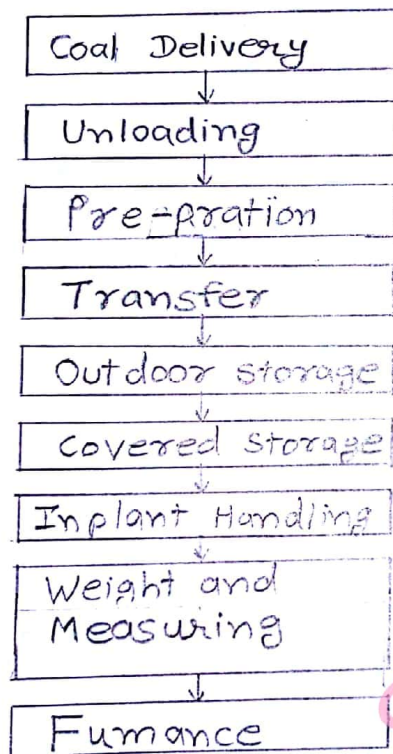 Coal Delivery
Unloading
Pre-pration
Transfer
Outdoor storage
Covered Storage
Inplant Handling
Weight and
Measuring
Fumance